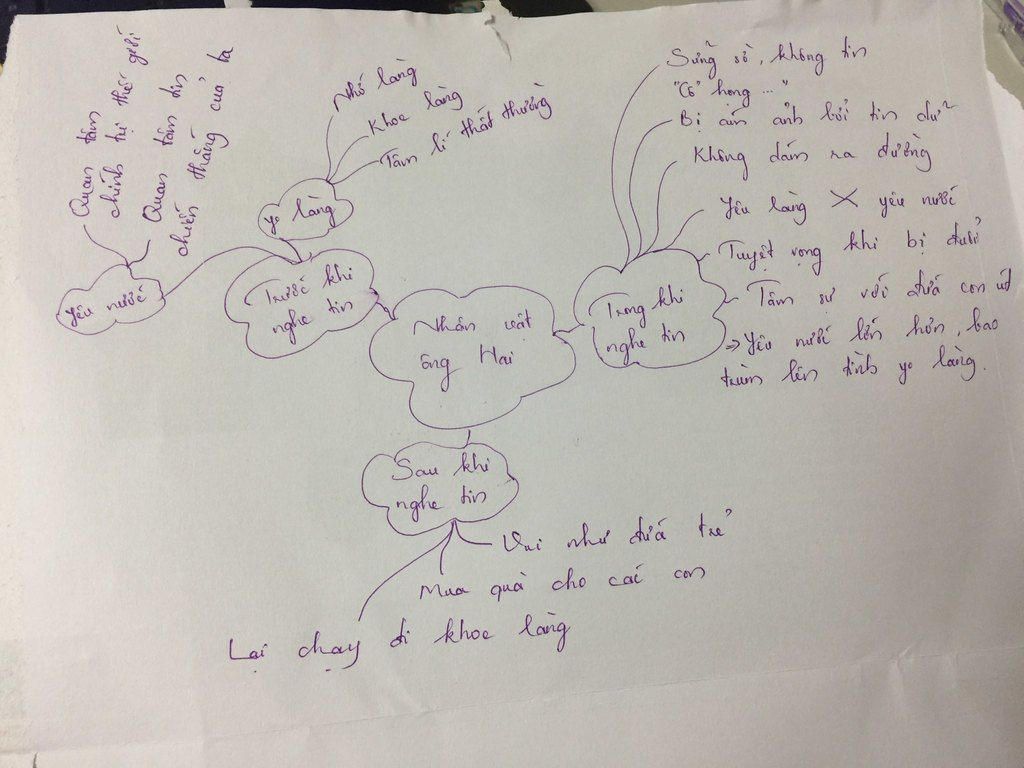 Nhân vật
ông Hai
Trước khi
nghe tin
Yêu nước
Quan tâm
chính trị thế giới
Quan tâm tin
chiến thắng của ta
yo làng
Nhớ làng
Khoe làng
Tâm lí thất thường
Trong khi
nghe tin
Sững sờ, không tin
"Cổ họng ..."
Bị ám ảnh bởi tin dữ
Không dám ra đường
Yêu làng X yêu nước
Tuyệt vọng khi bị đuổi
Tâm sự với đứa con út
⇒ Yêu nước lớn hơn, bao
trùm lên tình yo làng.
Sau khi
nghe tin
Vui như đứa trẻ
Mua quà cho các con
Lại chạy đi khoe làng